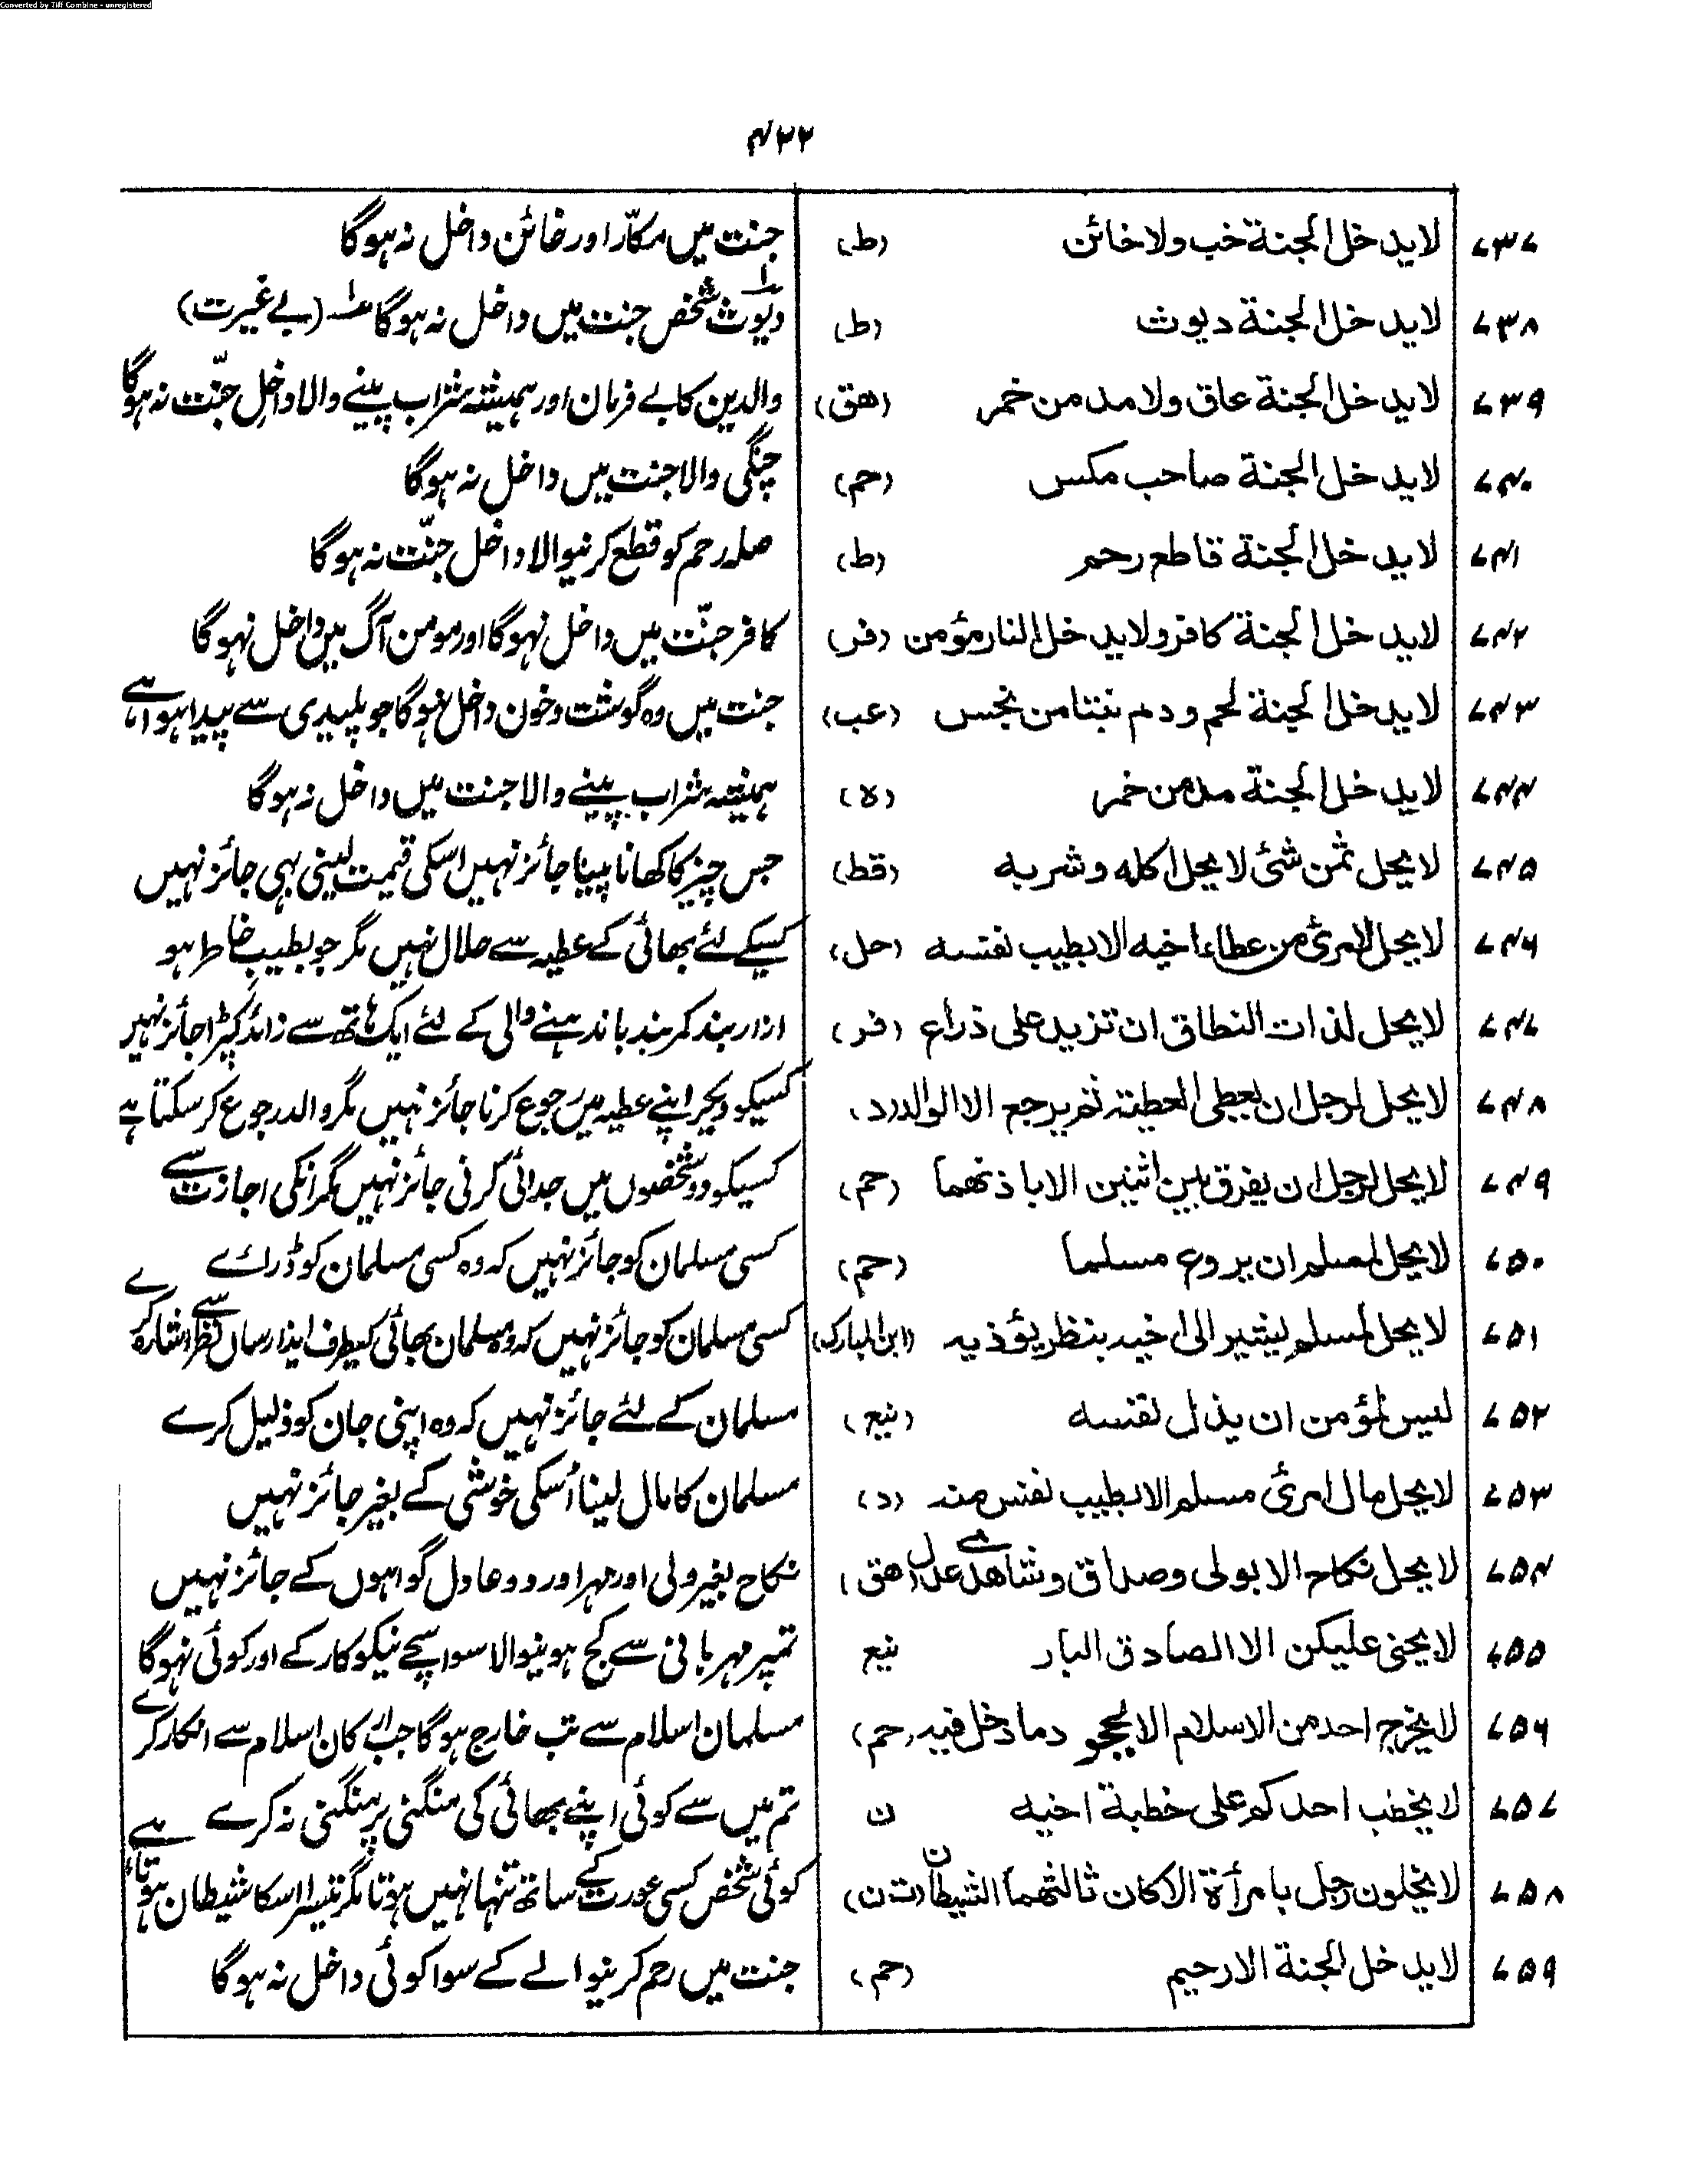 Converted by Tiff Combine - unregistered
۴۲۲
۷۳۷ لا یدخل الجنة خب ولا خائن (ط) جنت میں مکّار اور خائن داخل نہ ہوگا
۷۳۸ لا یدخل الجنة دیوث (ط) دیّوث شخص جنت میں داخل نہ ہوگا (بے غیرت)
۷۳۹ لا یدخل الجنة عاق ولا مدمن خمر (ھق) والدین کا بے فرمان اور ہمیشہ شراب پینے والا داخلِ جنّت نہ ہوگا
۷۴۰ لا یدخل الجنة صاحب مکس (حم) چنگی والا جنت میں داخل نہ ہوگا
۷۴۱ لا یدخل الجنة قاطع رحم (ط) صلہ رحم کو قطع کرنیوالا داخل جنّت نہ ہوگا
۷۴۲ لا یدخل الجنة کافر ولا یدخل النار مؤمن (فر) کافر جنّت میں داخل نہوگا اور مومن آگ میں داخل نہوگا
۷۴۳ لا یدخل الجنة لحم ودم نبتا من نجس (عب) جنت میں وہ گوشت و خون داخل نہوگا جو پلیدی سے پیدا ہوا ہے
۷۴۴ لا یدخل الجنة مدمن خمر (ہ) ہمیشہ شراب پینے والا جنت میں داخل نہ ہوگا
۷۴۵ لا یحل ثمن شئی لا یحل اکله وشربه (قط) جس چیز کا کھانا پینا جائز نہیں اسکی قیمت لینی بہی جائز نہیں
۷۴۶ لا یحل لامرئ من عطاء اخیه الا بطیب نفسه (حل) کسیکے لئے بھائی کے عطیہ سے حلال نہیں مگر جو بطیبِ خاطر ہو
۷۴۷ لا یحل لذات النطاق ان تزید علی ذراع (فر) ازار بند کمر بند باندھنے والی کے لئے ایک ہاتھ سے زائد کپڑا جائز نہیں
۷۴۸ لا یحل لرجل ان یعطی العطیة ثم یرجع الا الوالد (د) کسیکو دیکر اپنے عطیہ میں رجوع کرنا جائز نہیں مگر والد رجوع کر سکتا ہے
۷۴۹ لا یحل لرجل ان یفرق بین اثنین الا باذنھما (حم) کسیکو دو شخصوں میں جدائی کرنی جائز نہیں مگر انکی اجازت سے
۷۵۰ لا یحل لمسلم ان یروع مسلما (حم) کسی مسلمان کو جائز نہیں کہ وہ کسی مسلمان کو ڈرائے
۷۵۱ لا یحل لمسلم یشیر الی اخیه بنظر یؤذیه (ابن المبارک) کسی مسلمان کو جائز نہیں کہ وہ مسلمان بھائی کیطرف ایذا رساں نظر سے اشارہ کرے
۷۵۲ لیس لمؤمن ان یذل نفسه (نیع) مسلمان کے لئے جائز نہیں کہ وہ اپنی جان کو ذلیل کرے
۷۵۳ لا یحل مال امرئ مسلم الا بطیب نفس منه (د) مسلمان کا مال لینا اُسکی خوشی کے بغیر جائز نہیں
۷۵۴ لا یحل نکاح الا بولی وصداق وشاھدی عدل (ھق) نکاح بغیر ولی اور مہر اور دو عادل گواہوں کے جائز نہیں
۷۵۵ لا یحنی علیکن الا الصادق البار نیع تمپر مہربانی سے کج ہونیوالا سوا سچے نیکوکار کے اور کوئی نہوگا
۷۵۶ لا یخرج احد من الاسلام الا بجحود ما دخل فیه (حم) مسلمان اسلام سے تب خارج ہوگا جب ارکان اسلام سے انکار کرے
۷۵۷ لا یخطب احدکم علی خطبة اخیه ن تم میں سے کوئی اپنے بھائی کی منگنی پر منگنی نہ کرے
۷۵۸ لا یخلون رجل بامرأة الا کان ثالثھما الشیطان (ت ن) کوئی شخص کسی عورت کے ساتھ تنہا نہیں ہوتا مگر تیسرا اسکا شیطان ہوتا ہے
۷۵۹ لا یدخل الجنة الا رحیم (حم) جنت میں رحم کرنیوالے کے سوا کوئی داخل نہ ہوگا